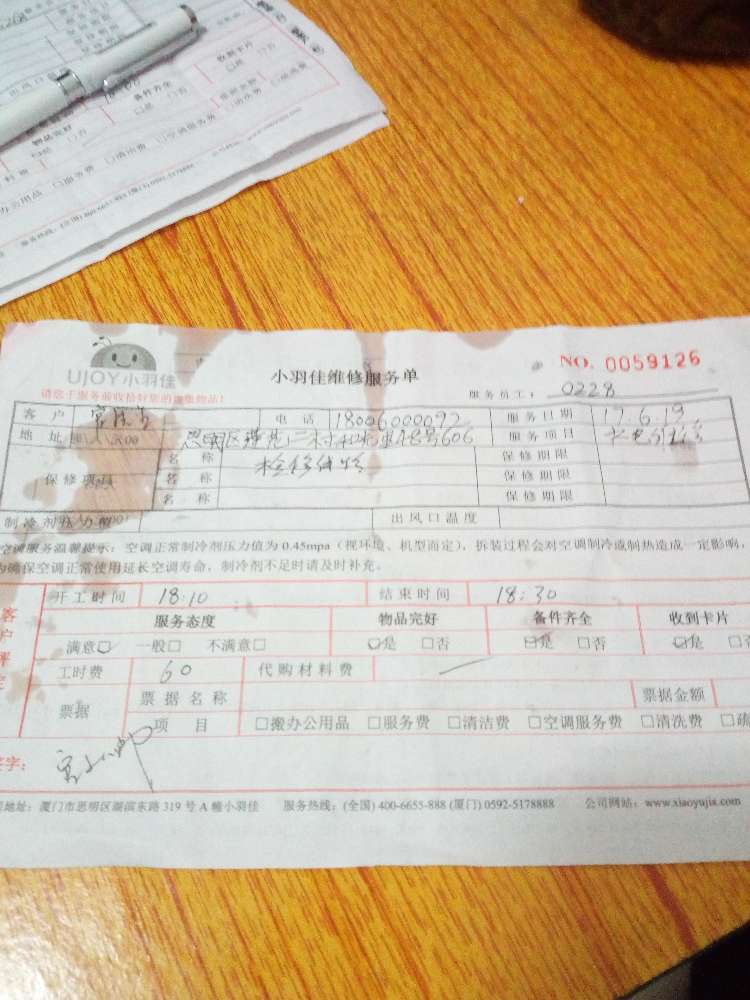 收到卡片
备件齐全
□是 □否
物品完好
□空调服务费
□清洁费
□服务费
办公用品
UJOY小羽佳
小羽佳维修服务单
NO. 0059126
请您于服务前收拾好您的贵重物品!
服务员工: 0228
客户 电话 18006000092 服务日期 17.6.19
地址 思明区莲花二村 48号606 服务项目
保修项目 名称 检修线路 保修期限
名称 保修期限
名称 保修期限
制冷剂压力值 出风口温度
空调服务温馨提示:空调正常制冷剂压力值为 0.45mpa(视环境、机型而定),拆装过程会对空调制冷或制热造成一定影响,
为确保空调正常使用延长空调寿命,制冷剂不足时请及时补充。
客户评定
开工时间 18:10 结束时间 18:30
服务态度 物品完好 备件齐全 收到卡片
满意☑ 一般□ 不满意□ ☑是 □否 ☑是 □否 ☑是 □否
工时费 60 代购材料费 —
票据 票据名称 票据金额
项目 □搬办公用品 □服务费 □清洁费 □空调服务费 □清洗费 □疏
签字:
地址:厦门市思明区湖滨东路 319 号 A 幢小羽佳 服务热线:(全国) 400-6655-888 (厦门) 0592-5178888 公司网站:www.xiaoyujia.com